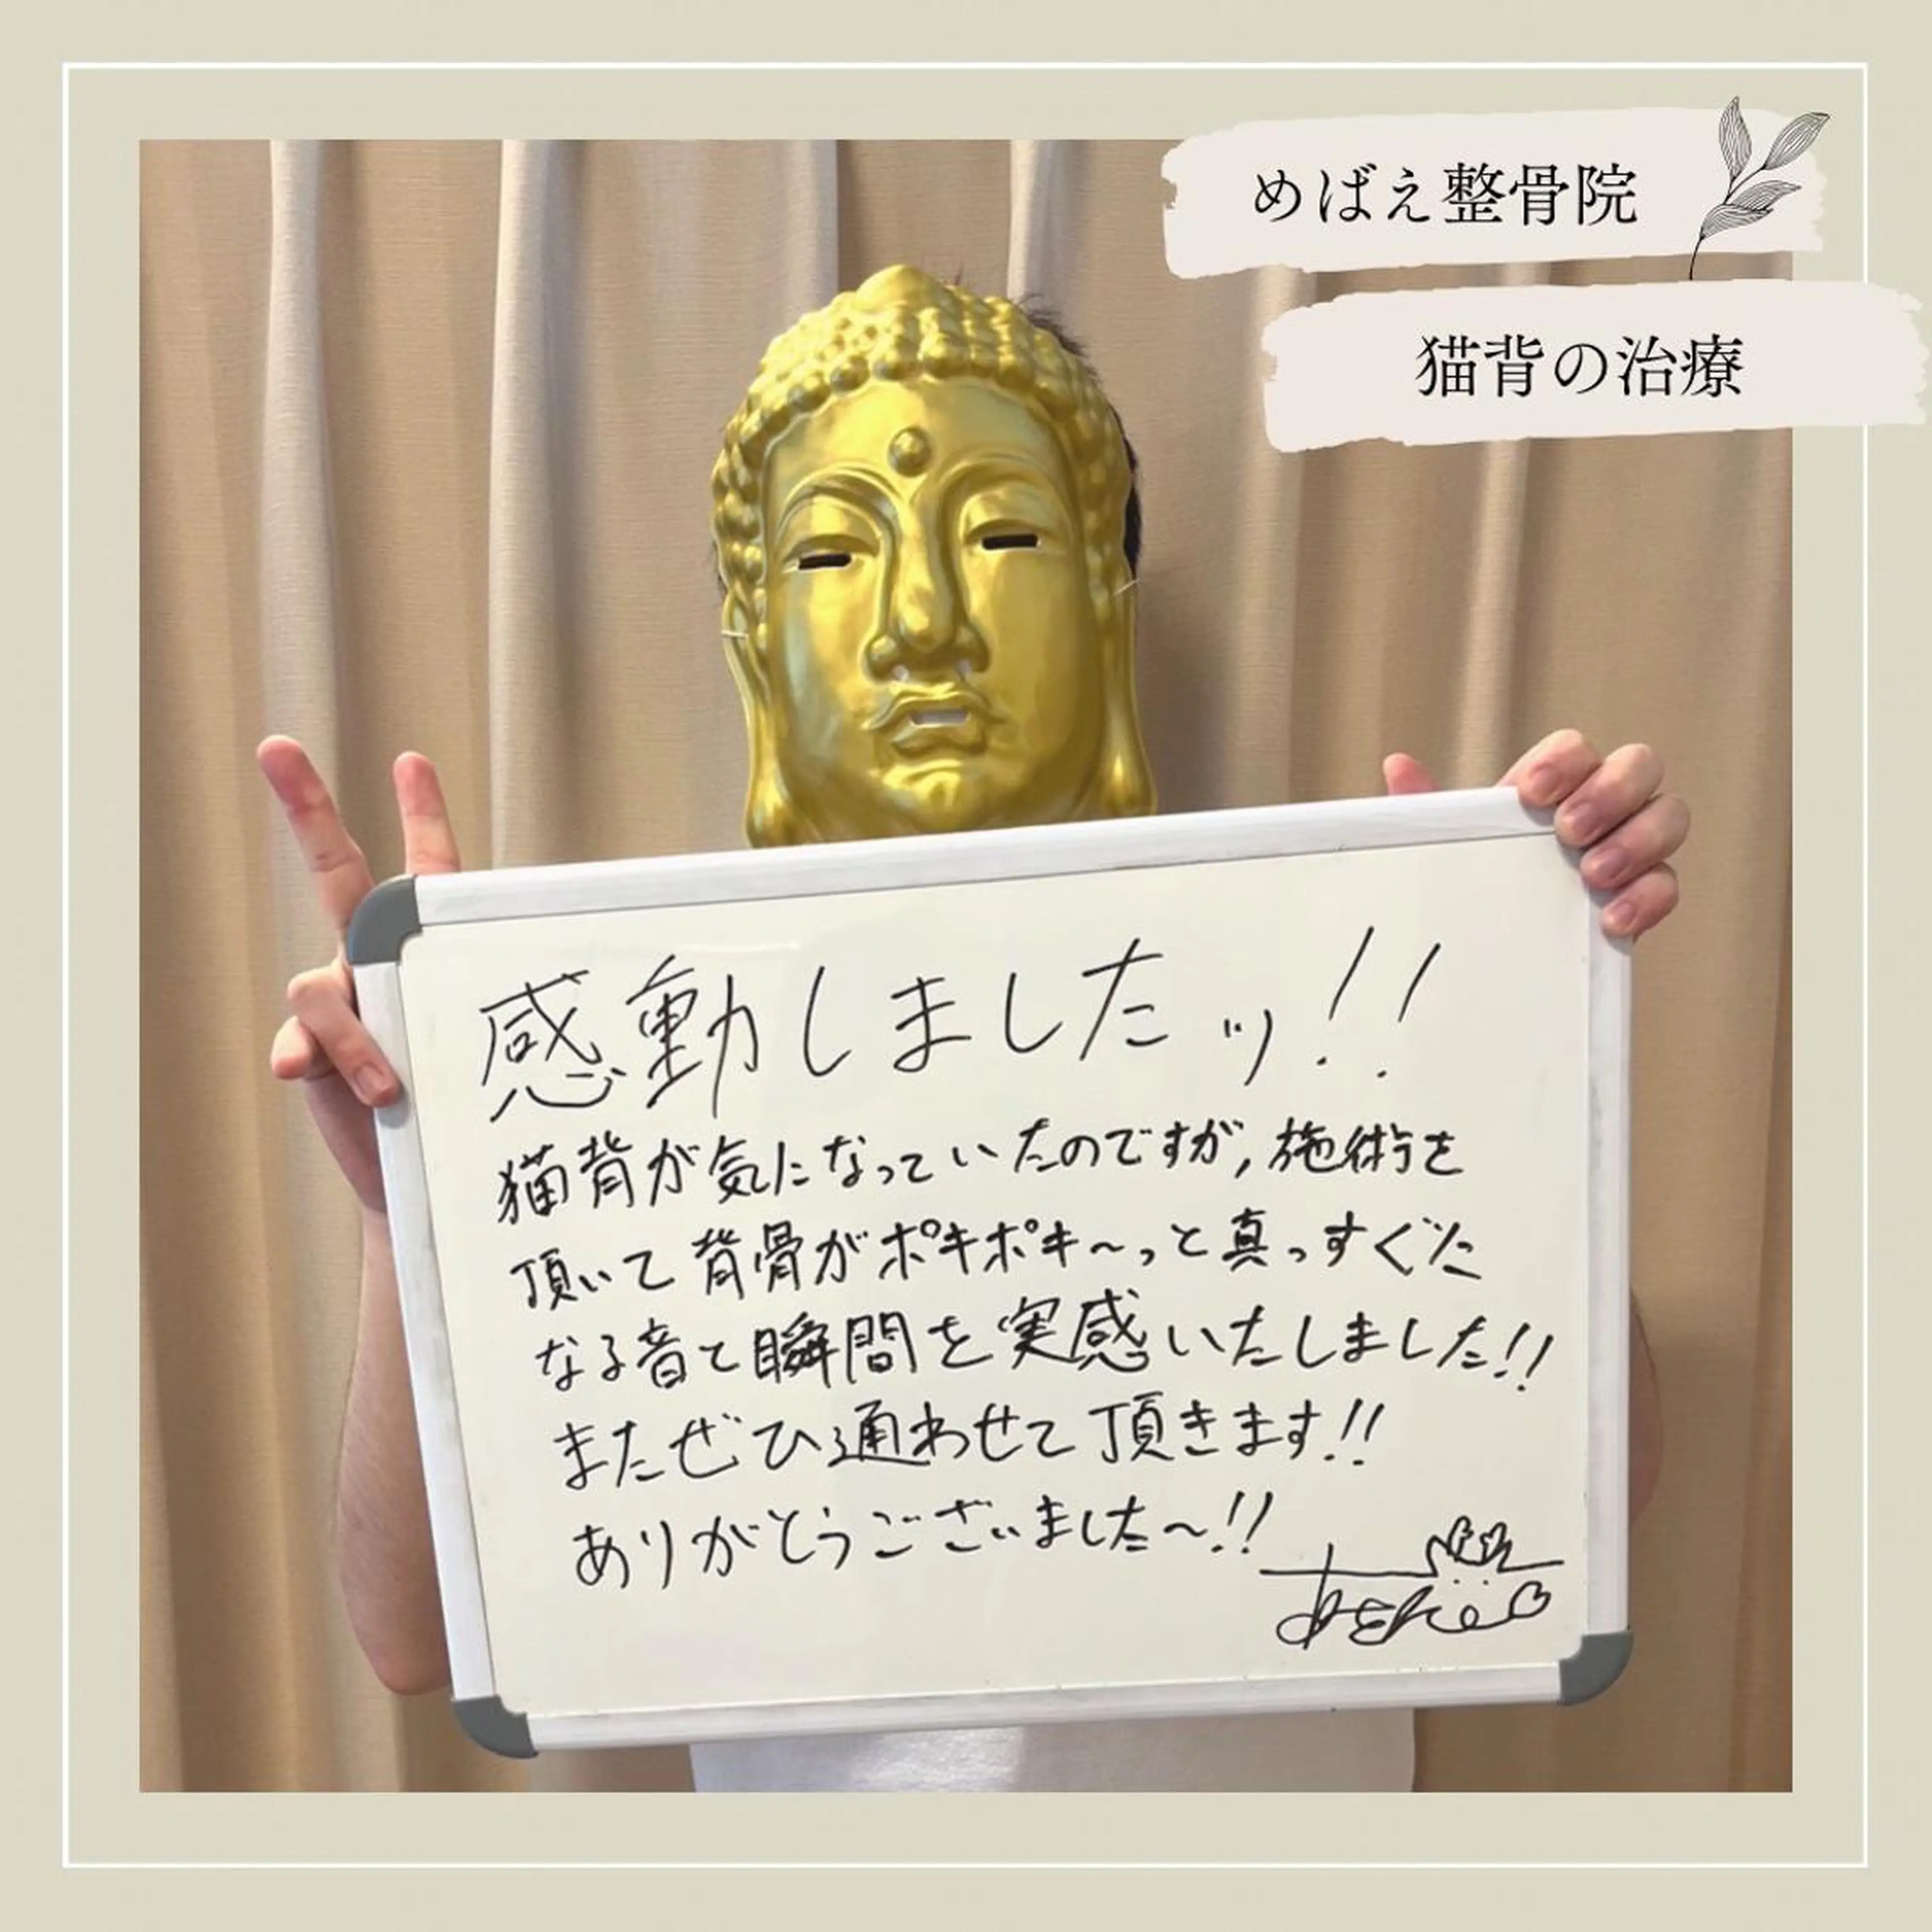 めばえ整骨院
猫背の治療
感動しましたッ!!
猫背が気になっていたのですが,施術を
頂いて背骨がポキポキ〜っと真っすぐに
なる音と瞬間を実感いたしました!!
またぜひ通わせて頂きます!!
ありがとうございました〜!!